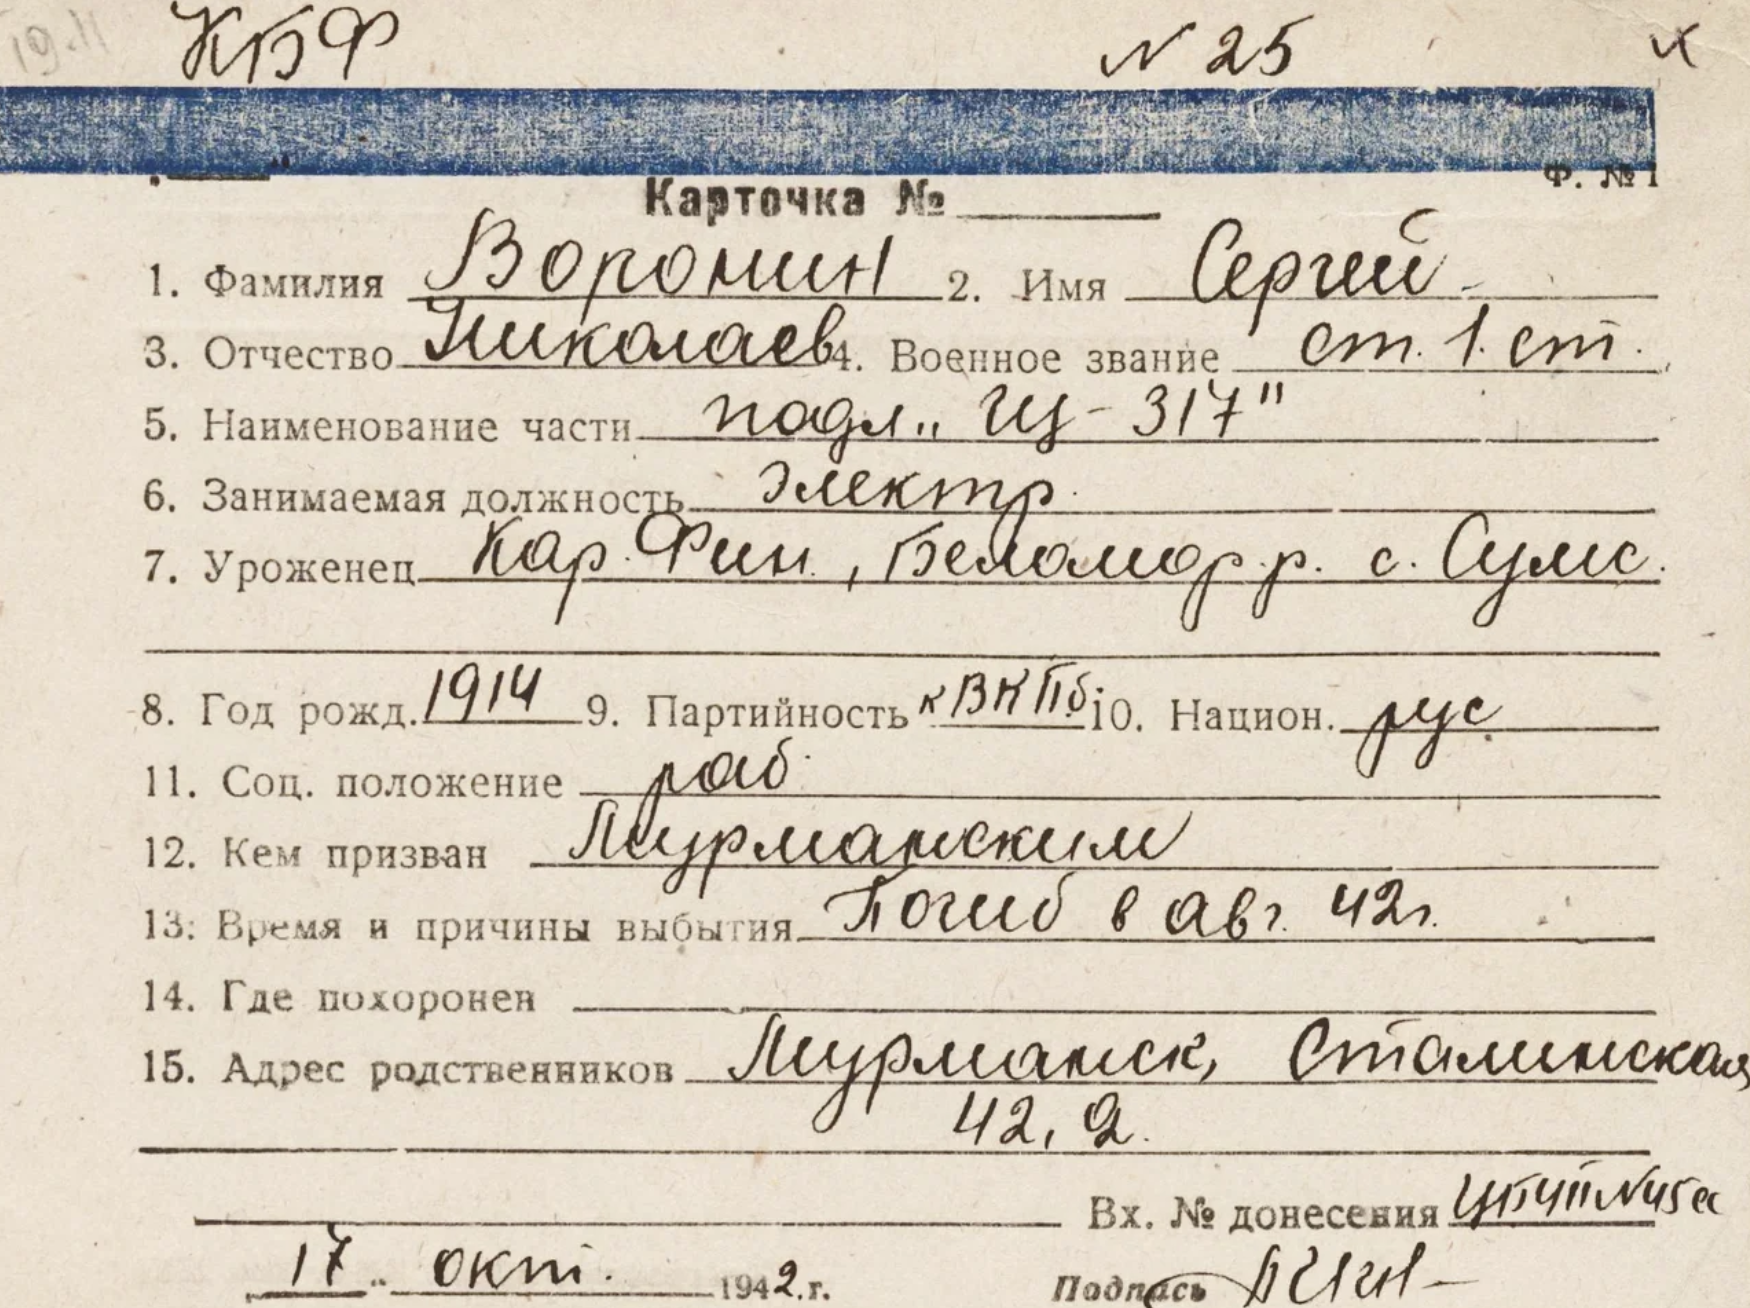 19.11
КБФ N 25
Ф. № 1
Карточка №
1. Фамилия Воронин 2. Имя Сергей
3. Отчество Николаев 4. Военное звание ст. 1. ст.
5. Наименование части подл. „Щ-317"
6. Занимаемая должность электр.
7. Уроженец Кар. Фин., Беломор. р. с. Сумс.
8. Год рожд. 1914 9. Партийность к ВКПб 10. Национ. рус.
11. Соц. положение раб.
12. Кем призван Мурманским
13. Время и причины выбытия Погиб в авг. 42 г.
14. Где похоронен
15. Адрес родственников Мурманск, Сталинская
42, 2.
Вх. № донесения
17 „ окт. 1942 г. Подпись